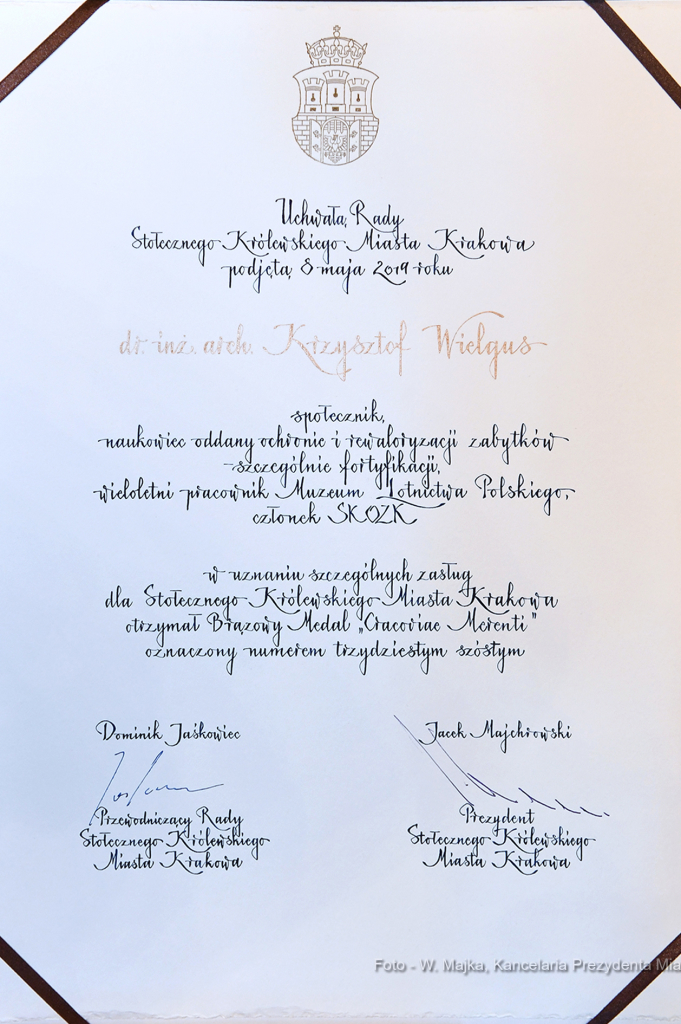 Uchwałą Rady
Stołecznego Królewskiego Miasta Krakowa
podjętą 8 maja 2019 roku
dr. inż. arch. Krzysztof Wielgus
społecznik,
naukowiec oddany ochronie i rewaloryzacji zabytków
szczególnie fortyfikacji,
wieloletni pracownik Muzeum Lotnictwa Polskiego,
członek SKOZK
w uznaniu szczególnych zasług
dla Stołecznego Królewskiego Miasta Krakowa
otrzymał Brązowy Medal „Cracoviae Merenti”
oznaczony numerem trzydziestym szóstym
Dominik Jaśkowiec
Przewodniczący Rady
Stołecznego Królewskiego
Miasta Krakowa
Jacek Majchrowski
Prezydent
Stołecznego Królewskiego
Miasta Krakowa
Foto - W. Majka, Kancelaria Prezydenta Mia